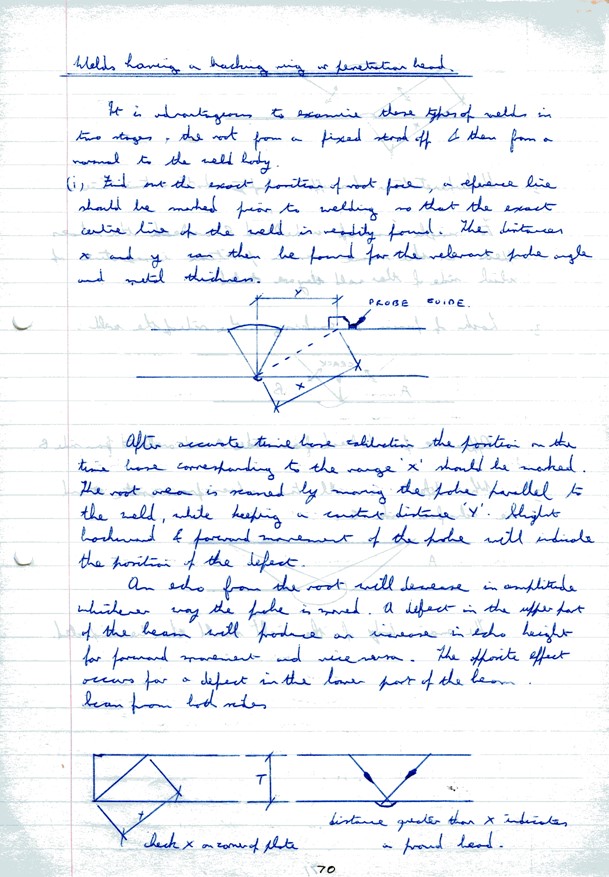 Welds having a backing ring or penetration bead.
It is advantageous to examine these types of welds in
two stages, the root from a fixed stand off & then from a
normal to the weld body.
(i) Find out the exact position of root face, a reference line
should be marked prior to welding so that the exact
centre line of the weld is readily found. The distances
x and y can then be found for the relevant probe angle
and metal thickness.
Y
PROBE GUIDE.
x
After accurate time base calibration the position on the
time base corresponding to the range 'x' should be marked.
The root area is scanned by moving the probe parallel to
the weld, while keeping a constant distance 'Y'. Slight
backward & forward movement of the probe will indicate
the position of the defect.
An echo from the root will decrease in amplitude
whichever way the probe is moved. A defect in the upper part
of the beam will produce an increase in echo height
for forward movement and vice versa. The opposite effect
occurs for a defect in the lower part of the beam.
Scan from both sides
T
x
check x on corner of plate
distance greater than x indicates
a proud bead.
70